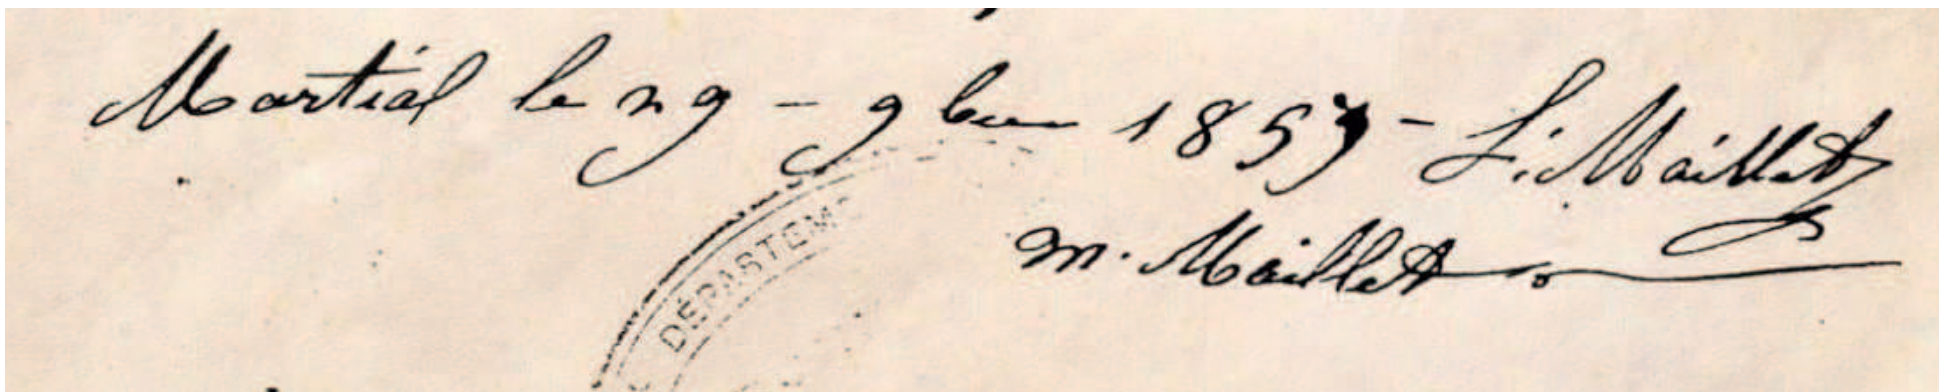 Martial le 29 - 9bre 1857 - L. Maillet
m. Maillet
DÉPARTEME